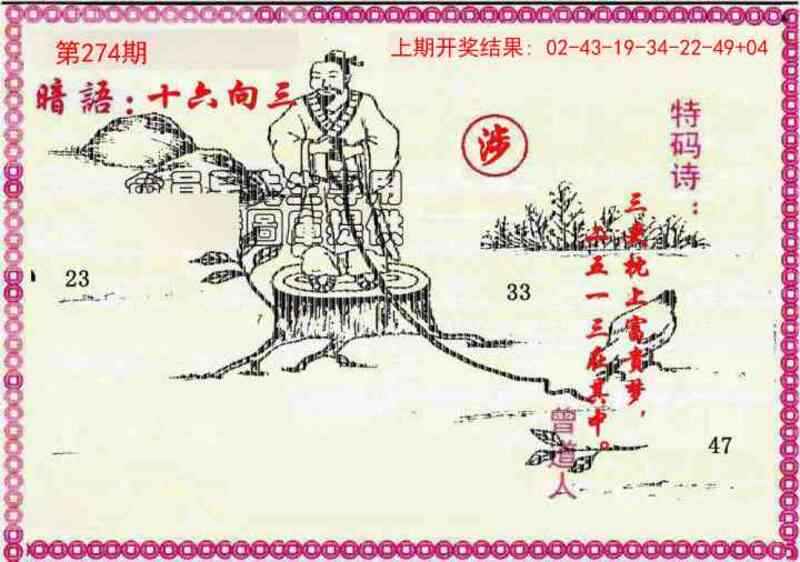 第274期
上期开奖结果：02-43-19-34-22-49+04
暗語：十六向三
涉
特码诗：
三更枕上富贵梦，
二五一三在其中。
曾道人
23
33
47